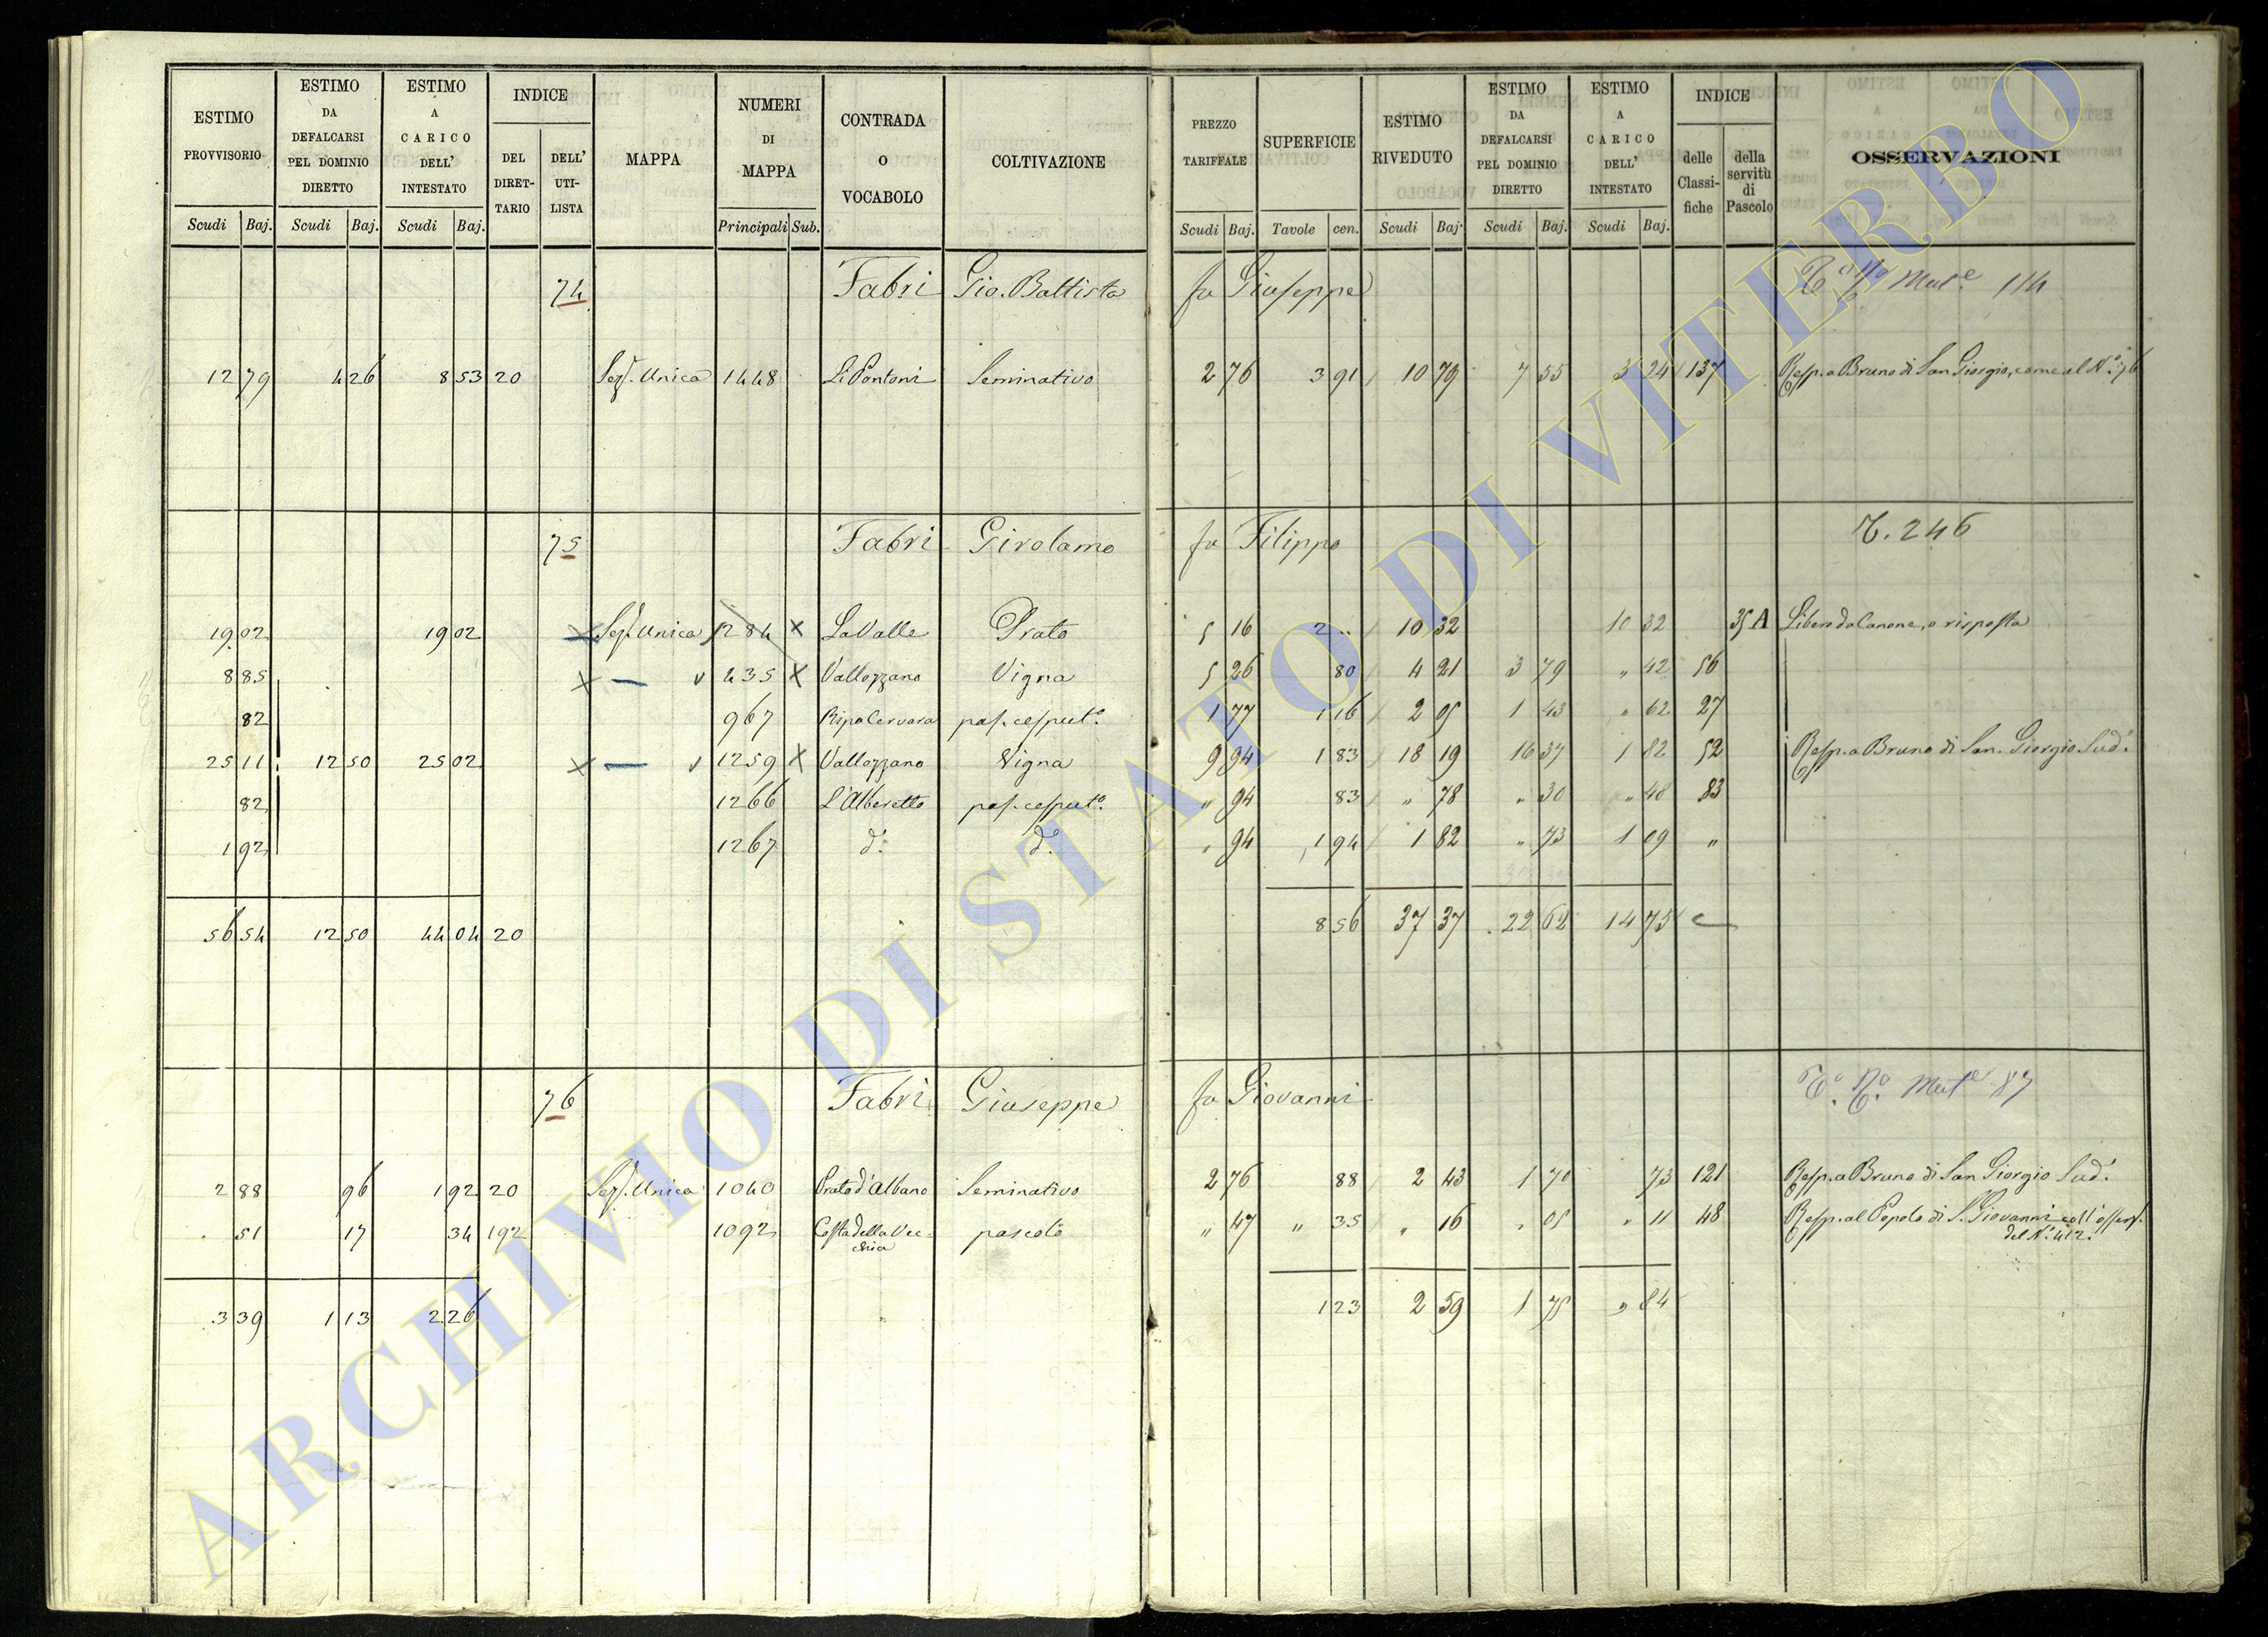 ESTIMO PROVVISORIO Scudi Baj.
ESTIMO DA DEFALCARSI PEL DOMINIO DIRETTO Scudi Baj.
ESTIMO A CARICO DELL' INTESTATO Scudi Baj.
INDICE DEL DIRET-TARIO DELL' UTI-LISTA
MAPPA
NUMERI DI MAPPA Principali Sub.
CONTRADA O VOCABOLO
COLTIVAZIONE
PREZZO TARIFFALE Scudi Baj.
SUPERFICIE Tavole cen.
ESTIMO RIVEDUTO Scudi Baj.
ESTIMO DA DEFALCARSI PEL DOMINIO DIRETTO Scudi Baj.
ESTIMO A CARICO DELL' INTESTATO Scudi Baj.
INDICE delle Classi-fiche della servitù di Pascolo
OSSERVAZIONI
74 Fabri Gio. Battista fu Giuseppe Mut.e 114
12 79 4 26 8 53 20 Sez. Unica 1448 Li Pontoni Seminativo 2 76 3 91 10 79 7 55 3 24 137 Resp. a Bruno di San Giorgio, come al N.° 76
75 Fabri Girolamo fu Filippo T. 246
19 02 19 02 Sez. Unica 1284 X La Valle Prato 5 16 2 .. 10 32 10 32 35 A Libero da Canone, o risposta
8 85 X — v 435 X Vallozzano Vigna 5 26 80 4 21 3 79 " 42 56
82 967 Ripa Cervara pas. cesput.° 1 77 1 16 2 05 1 43 " 62 27
25 11 12 50 25 02 X — v 1259 X Vallozzano Vigna 9 94 1 83 18 19 16 37 1 82 52 Resp. a Bruno di San Giorgio Sud.°
82 1266 L'Alberetto pas. cesput.° " 94 83 " 78 " 30 " 48 83
1 92 1267 d.° d.° " 94 1 94 1 82 " 73 1 09 "
56 54 12 50 44 04 20 8 56 37 37 22 62 14 75
76 Fabri Giuseppe fu Giovanni Mut.e 87
2 88 96 1 92 20 Sez. Unica 1040 Prato d'Albano Seminativo 2 76 88 2 43 1 70 73 121 Resp. a Bruno di San Giorgio Sud.°
51 17 34 192 1092 Costa della Vec=chia pascolo " 47 " 35 " 16 " 05 " 11 48 Resp. al Popolo di S. Giovanni coll'osserv. del N.° 412.
3 39 1 13 2 26 1 23 2 59 1 75 " 84
ARCHIVIO DI STATO DI VITERBO